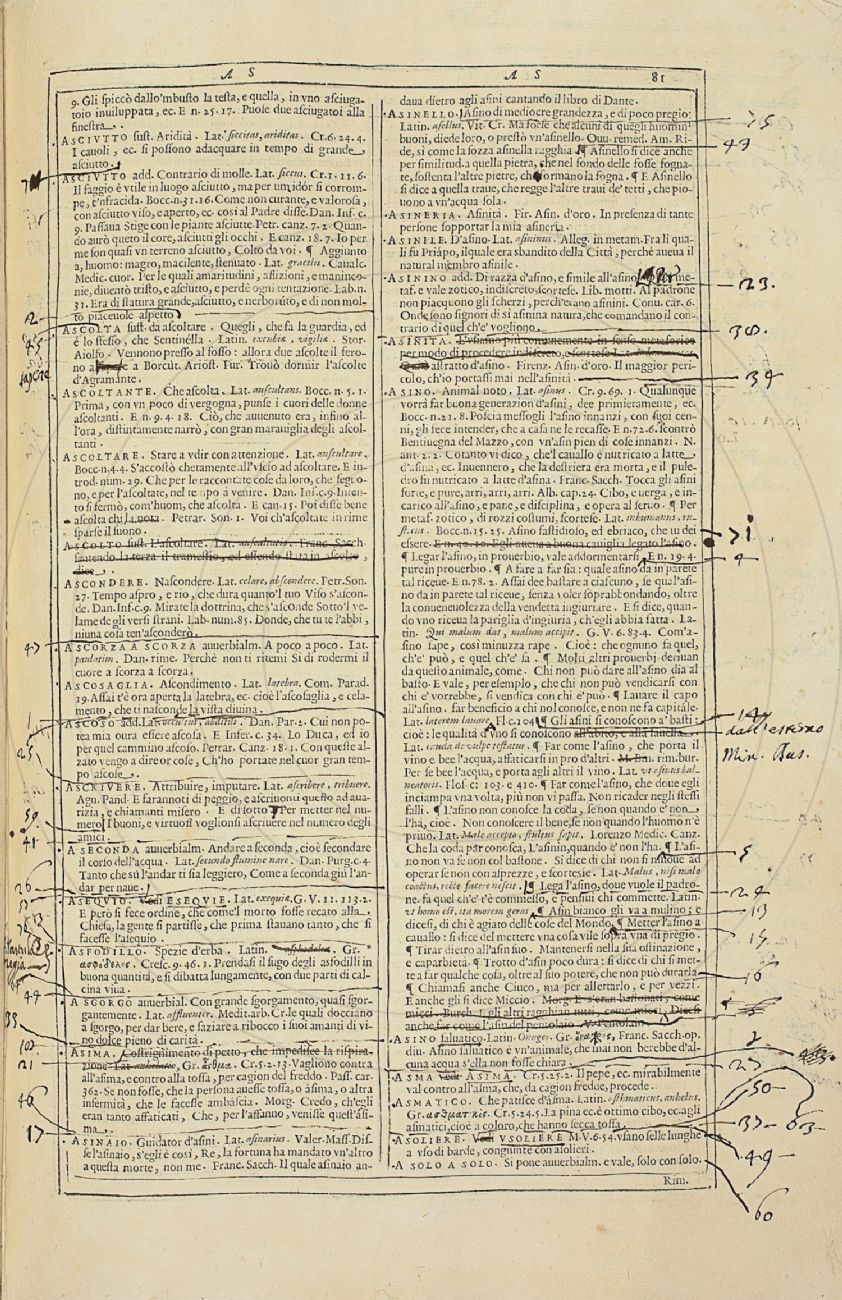 A S
A S
81
9. Gli spiccò dallo'mbusto la testa, e quella, in vno asciuga-
toio inuiluppata, ec. E n. 25. 17. Puose due asciugatoi alla
finestra.
ASCIVTTO sust. Aridità. Lat. siccitas, ariditas. Cr. 6. 24. 4.
I cauoli, ec. si possono adacquare in tempo di grande
asciutto.
ASCIVTTO add. Contrario di molle. Lat. siccus. Cr. 1. 11. 6.
Il faggio è vtile in luogo asciutto, ma per umidór si corrom-
pe, e'nfracida. Bocc. n. 31. 16. Come non curante, e valorosa,
con asciutto viso, e aperto, ec. così al Padre disse. Dan. Inf. c.
9. Passaua Stige con le piante asciutte. Petr. canz. 7. 2. Quan-
do aurò queto il core, asciutti gli occhi. E canz. 18. 7. Io per
me son quasi vn terreno asciutto, Colto da voi. ¶ Aggiunto
a, huomo: magro, macilente, stenuato. Lat. gracilis. Caualc.
Medic. cuor. Per le quali amaritudini, afflizioni, e maninco-
nie, diueatò tristo, e asciutto, e perdè ogni tentazione. Lab. n.
31. Era di statura grande, asciutto, e nerboruto, e di non mol-
to piaceuole aspetto
ASCOLTA sust. da ascoltare. Quegli, che fa la guardia, ed
è lo stesso, che Sentinella. Latin. excubiæ, vigiliæ. Stor.
Aiolfo. Vennono presso al fosso: allora due ascolte il fero-
no a e a Borcút. Ariost. Fur. Trouò dormir l'ascolte
d'Agramante.
ASCOLTANTE. Che ascolta. Lat. auscultans. Bocc. n. 5. 1.
Prima, con vn poco di vergogna, punse i cuori delle donne
ascoltanti. E n. 9. 4. 18. Ciò, che auuenuto era, infino al-
l'ora, distintamente narrò, con gran marauiglia degli ascol-
tanti.
ASCOLTARE. Stare a vdir con attenzione. Lat. auscultare.
Bocc. n. 4. 4. S'accostò chetamente all'vscio ad ascoltare. E in-
trod. num. 29. Che per le raccontate cose da loro, che seguo-
no, e per l'ascoltate, nel tempo à venire. Dan. Inf. c. 9. Inten-
to si fermò, com'huom, che ascolta. E can. 15. Poi disse bene
ascolta chi la nota. Petrar. Son. 1. Voi ch'ascoltate in rime
sparse il suono.
ASCOLTO sust. L'ascoltare. Lat. auscultatio. Franc. Sacch.
ASCONDERE. Nascondere. Lat. celare, abscondere. Petr. Son.
27. Tempo aspro, e rio, che dura quanto'l tuo Viso s'ascon-
de. Dan. Inf. c. 9. Mirate la dottrina, che s'asconde Sotto'l ve-
lame degli versi strani. Lab. num. 85. Donde, che tu te l'abbi,
niuna cosa ten'asconderò.
ASCORZA A SCORZA auuerbialm. A poco a poco. Lat.
paulatim. Dan. rime. Perchè non ti ritemi Sì di rodermi il
cuore a scorza a scorza.
ASCOSAGLIA. Ascondimento. Lat. latebra. Com. Parad.
19. Assai t'è ora aperta la latebra, ec. cioè l'ascosaglia, e cela-
mento, che ti nasconde la vista diuina.
ASCOSO add. Lat. occultus, abditus. Dan. Par. 2. Cui non po-
tea mia oura essere ascosa. E Infer. c. 34. Lo Duca, ed io
per quel cammino ascoso. Petrar. Canz. 18. 1. Con queste al-
zato vengo a dire or cose, Ch'ho portate nel cuor gran tem-
po ascose.
ASCRIVERE. Attribuire, imputare. Lat. ascribere, tribuere.
Agn. Pand. E sarannoti di peggio, e ascriuonti questo ad aua-
rizia, e chiamanti misero. E di sotto. Per metter nel nu-
mero. I buoni, e virtuosi voglionsi ascriuere nel numero degli
amici.
A SECONDA auuerbialm. Andare a seconda, cioè secondare
il corso dell'acqua. Lat. secundo flumine nare. Dan. Purg. c. 4.
Tanto che sù l'andar ti sia leggiero, Come a seconda giù l'an-
dar per naue.
ASEQVIO. Vedi ESEQVIE. Lat. exequiæ. G. V. 11. 113. 2.
E però si fece ordine, che come'l morto fosse recato alla
Chiesa, la gente si partisse, che prima stauano tanto, che si
facesse l'asequio.
ASFODILLO. Spezie d'erba. Latin. asphodelus. Gr.
ἀσφόδελος. Cresc. 9. 46. 1. Prendasi il sugo degli asfodilli in
buona quantità, e si dibatta lungamente, con due parti di cal-
cina viua.
A SGORGO auuerbial. Con grande sgorgamento, quasi sgor-
gantemente. Lat. affluenter. Medit. arb. Cr. le quali docciano
a sgorgo, per dar bere, e saziare a ribocco i suoi amanti di vi-
no dolce pieno di carità.
ASIMA. Costrignimento di petto, che impedisce la respira-
zione. Lat. anhelatio, Gr. ἄσθμα. Cr. 5. 2. 13. Vagliono contra
all'asima, e contro alla tossa, per cagion del freddo. Pass. car.
362. Se non fosse, che la persona auesse tossa, o asima, o altra
infermità, che le facesse ambascia. Morg. Credo, ch'egli
eran tanto affaticati, Che, per l'affanno, venisse quest'asi-
ma.
ASINAIO. Guidator d'asini. Lat. asinarius. Valer. Mass. Dis-
se l'asinaio, s'egli è così, Re, la fortuna ha mandato vn'altro
a questa morte, non me. Franc. Sacch. Il quale asinaio an-
daua dietro agli asini cantando il libro di Dante.
ASINELLO. Asino di mediocre grandezza, e di poco pregio.
Latin. asellus. Vit. Cr. Ma forse che alcuni di quegli huomini
buoni, diede loro, o prestò vn'asinello. Ouu. remed. Am. Ri-
de, sì come la sozza asinella ragghia. ¶ Asinello si dice anche
per similitud. a quella pietra, che nel fondo delle fosse fogna-
te, sostenta l'altre pietre, che formano la fogna. ¶ E Asinello
si dice a quella traue, che regge l'altre traui de' tetti, che pio-
uono a vn'acqua sola.
ASINERIA. Asinità. Fir. Asin. d'oro. In presenza di tante
persone sopportar la mia asineria.
ASINILE. D'asino. Lat. asininus. Alleg. in metam. Fra li qua-
li fu Priápo, il quale era sbandito della Città, perchè aueua il
natural membro asinile.
ASININO add. Di razza d'asino, e simile all'asino. Per me-
taf. e vale zotico, indiscreto, scortese. Lib. motti. Al padrone
non piacquono gli scherzi, perch'erano asinini. Conu. car. 6.
Onde sono signori di sì asinina natura, che comandano il con-
trario di quel ch'e' vogliono.
ASINITÀ. L'vsiamo più comunemente in senso metaforico
per modo di procedere indiscreto, e scortese. Lat.
astratto d'asino. Firenz. Asin. d'oro. Il maggior peri-
colo, ch'io portassi mai nell'asinità.
ASINO. Animal noto. Lat. asinus. Cr. 9. 69. 1. Qualunque
vorrà far buona generazion d'asini, dee primieramente, ec.
Bocc. n. 21. 8. Poscia messogli l'asino innanzi, con suoi cen-
ni, gli fece intender, che a casa ne le recasse. E n. 72. 6. scontrò
Bentiuegna del Mazzo, con vn'asin pien di cose innanzi. N.
ant. 2. 2. Cotanto vi dico, che'l cauallo è nutricato a latte
d'asina, ec. Inuennero, che la destriera era morta, e il pule-
dro fu nutricato a latte d'asina. Franc. Sacch. Tocca gli asini
forte, e pure, arri, arri, arri. Alb. cap. 24. Cibo, e uerga, e in-
carico all'asino, e pane, e disciplina, e opera al seruo. ¶ Per
metaf. zotico, di rozzi costumi, scortese. Lat. inhumanus, ru-
sticus. Bocc. n. 15. 25. Asino fastidioso, ed ebriaco, che tu dei
essere.
¶ Legar l'asino, in prouerbio, vale addormentarsi. E n. 19. 4.
pure in prouerbio. ¶ A fare a far sia: quale asino da in parete
tal riceue. E n. 78. 2. Assai dee bastare a ciascuno, se qual'asi-
no da in parete tal riceue, senza voler soprabbondando, oltre
la conueneuolezza della vendetta ingiuriare. E si dice, quan-
do vno riceua la pariglia d'ingiuria, ch'egli abbia fatta. La-
tin. Qui malum dat, malum accipit. G. V. 6. 83. 4. Com'a-
sino sape, così minuzza rape. Cioè: che ognuno fa quel,
ch'e' può, e quel ch'e' sa. ¶ Molti altri prouerbj deriuan
da questo animale, come. Chi non può dare all'asino dia al
basto. E vale, per esemplo, che chi non può vendicarsi con
chi e' vorrebbe, si vendica con chi e' può. ¶ Lauare il capo
all'asino. far beneficio a chi nol conosce, e non ne fa capitale.
Lat. laterem lauare. Fl. c. 104. ¶ Gli asini si conoscono a' basti:
cioè: le qualità d'vno si conoscono all'abito, e alla fauella.
Lat. cauda de vulpe testatur. ¶ Far come l'asino, che porta il
vino e bee l'acqua, affaticarsi in pro d'altri. M. Ban. rim. bur.
Per se bee l'acqua, e porta agli altri il vino. Lat. vt asinus bal-
neatoris. Flos. c: 103. e 410. ¶ Far come l'asino, che doue egli
inciampa vna volta, più non vi passa. Non ricader negli stessi
falli. ¶ L'asino non conosce la coda, se non quando e' non
l'ha, cioè. Non conoscere il bene, se non quando l'huomo n'è
priuo. Lat. Malo accepto, stultus sapit. Lorenzo Medic. Canz.
Che la coda par conosca, L'asin, quando e' non l'ha. ¶ L'asi-
no non va se non col bastone. Si dice di chi non si muoue ad
operar se non con asprezze, e scortesie. Lat. Malus, nisi malo
coactus, recte facere nescit. ¶ Lega l'asino, doue vuole il padro-
ne. fa quel ch'e' t'è commesso, e pensiui chi commette. Latin.
vt homo est, ita morem geras. ¶ Asin bianco gli va a mulino: e
dicesi, di chi è agiato delle cose del Mondo. ¶ Metter l'asino a
cauallo: si dice del mettere vna cosa vile sopra vna di pregio.
¶ Tirar dietro all'asin suo. Mantenersi nella sua ostinazione,
e caparbieta. ¶ Trotto d'asin poco dura: si dice di chi si met-
te a far qualche cosa, oltre al suo potere, che non può durarla.
¶ Chiamasi anche Ciuco, ma per allettarlo, e per vezzi.
E anche gli si dice Miccio. Morg. E s'eran bastonati, come
micci. Burch. E gli altri ragghian tutti, come micci, Dicesi
anche, far come l'asin del pentolaio. V. Pentolaio.
ASINO saluatico. Latin. Onager. Gr. Franc. Sacch. op.
diu. Asino saluatico è vn'animale, che mai non berebbe d'al-
cuna acqua s'ella non fosse chiara.
ASMA Vedi ASIMA. Cr. 5. 25. 2. Il pepe, ec. mirabilmente
val contro all'asma, che, da cagion fredde, procede.
ASMATICO. Che patisce d'asima. Latin. asthmaticus, anhelus.
Gr. ἀσθματικός. Cr. 5. 24. 5. La pina ecc è ottimo cibo, ec. agli
asinatici, cioè a coloro, che hanno secca tossa.
ASOLIERE. Vedi VSOLIERE M. V. 6. 54. vsano selle lunghe
a vso di barde, congiunte con asolieri.
A SOLO A SOLO. Si pone auuerbialm. e vale, solo con solo.
Rim.
2
47
1
25
59
41
26
44
33
102
21
46
17
75
43
23.
38.
39
71
4
14
dall'estremo
Min. Bus.
5
24
13
15
10
2
27
50
37
63
49
60